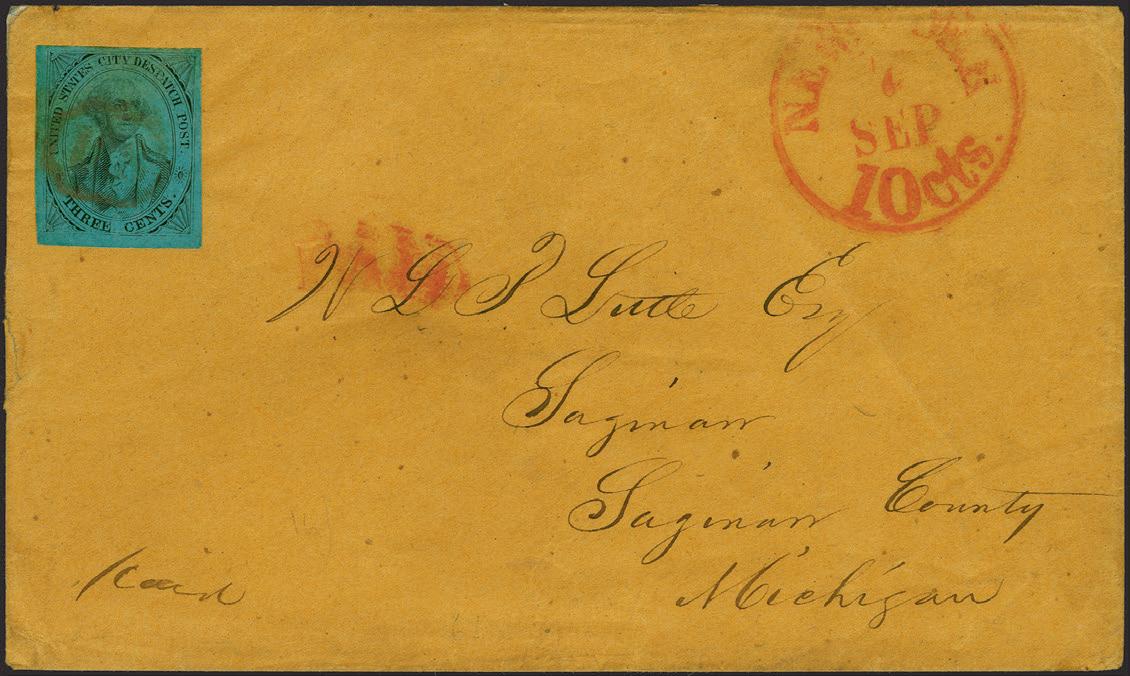 UNITED STATES CITY DESPATCH POST.
THREE CENTS.
NEW YORK
SEP
10cts.
PAID
W L P Little Esq
Saginaw
Saginaw County
Michigan
Paid